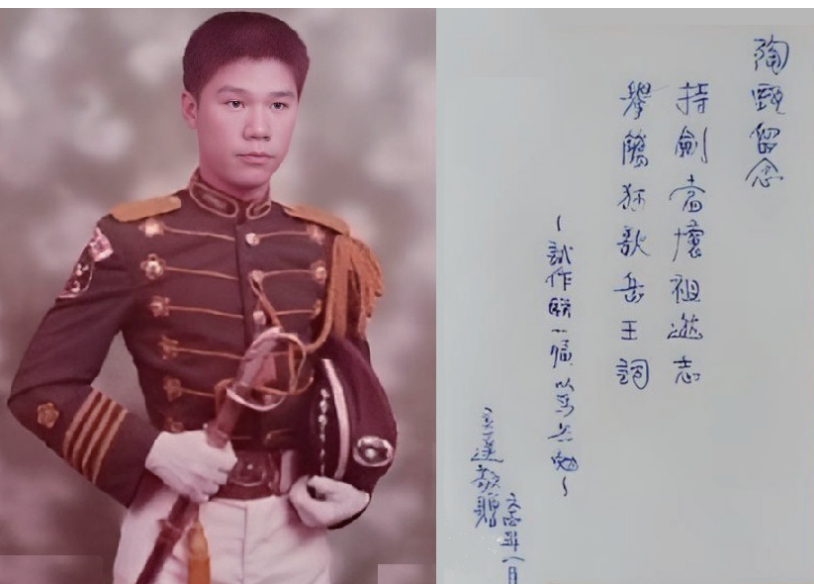 陶甄留念
持劍當懷祖逖志
舉觴狂歌岳王詞
~試作聯一幅以為共勉~
達敬贈
年一月